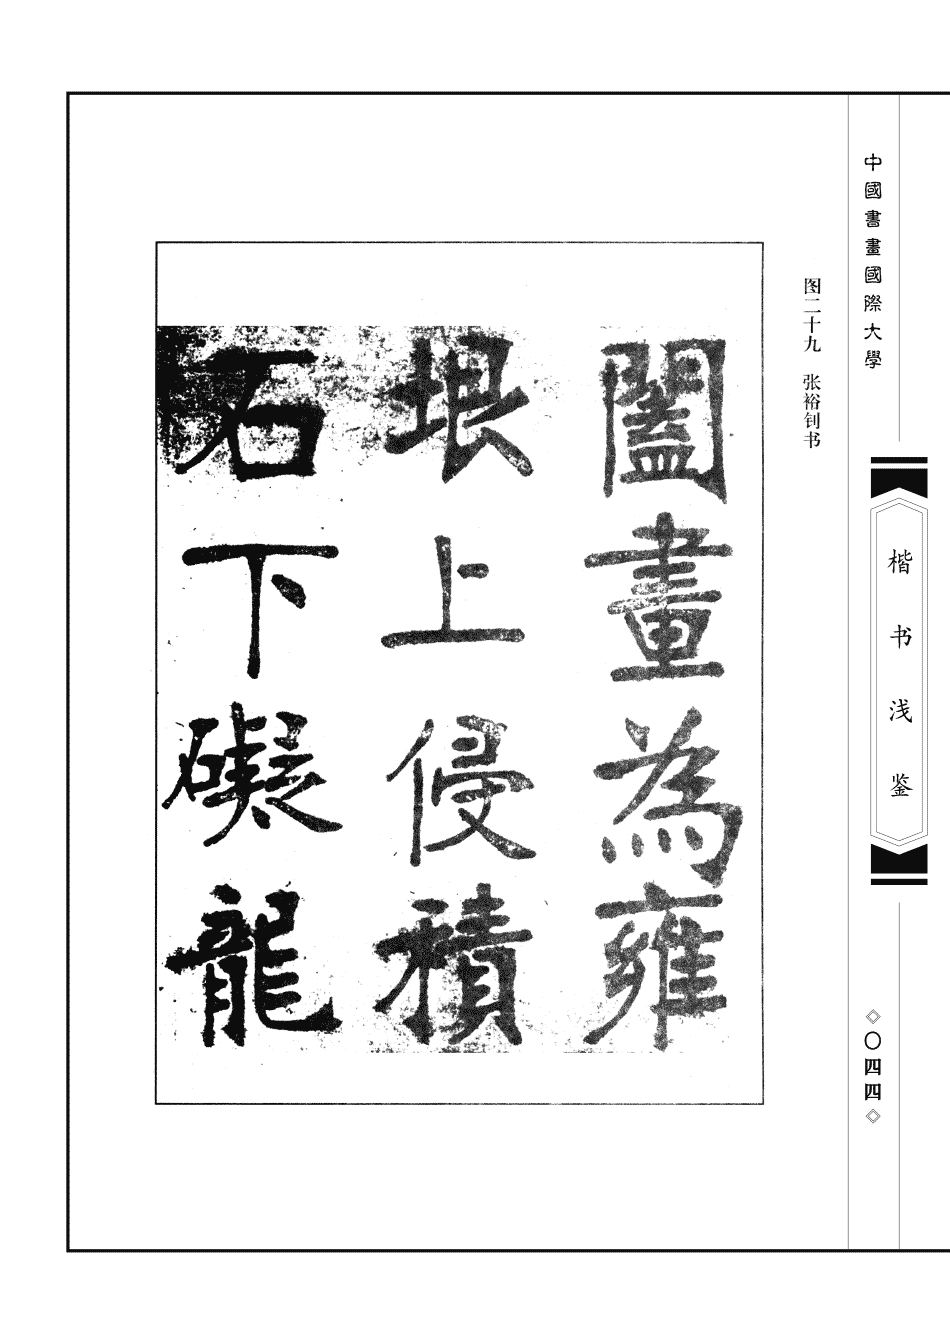 中國書畫國際大學
楷书浅鉴
〇四四
图二十九 张裕钊书
闔畫為雍
垠上侵積
石下礙龍